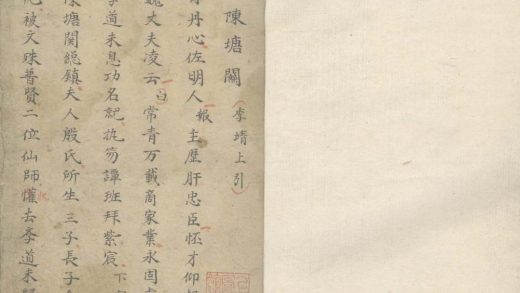 陳塘關（李靖上引）
丹心佐明人 報主歷肝忠臣怀才仰
丈夫凌云 白 常青万載商家業永固
李道未息功名記执笏譚班拜紫宸 下
陳塘関総鎮夫人殷氏所生三子長子
被文殊普賢二位仙師懽去李道未